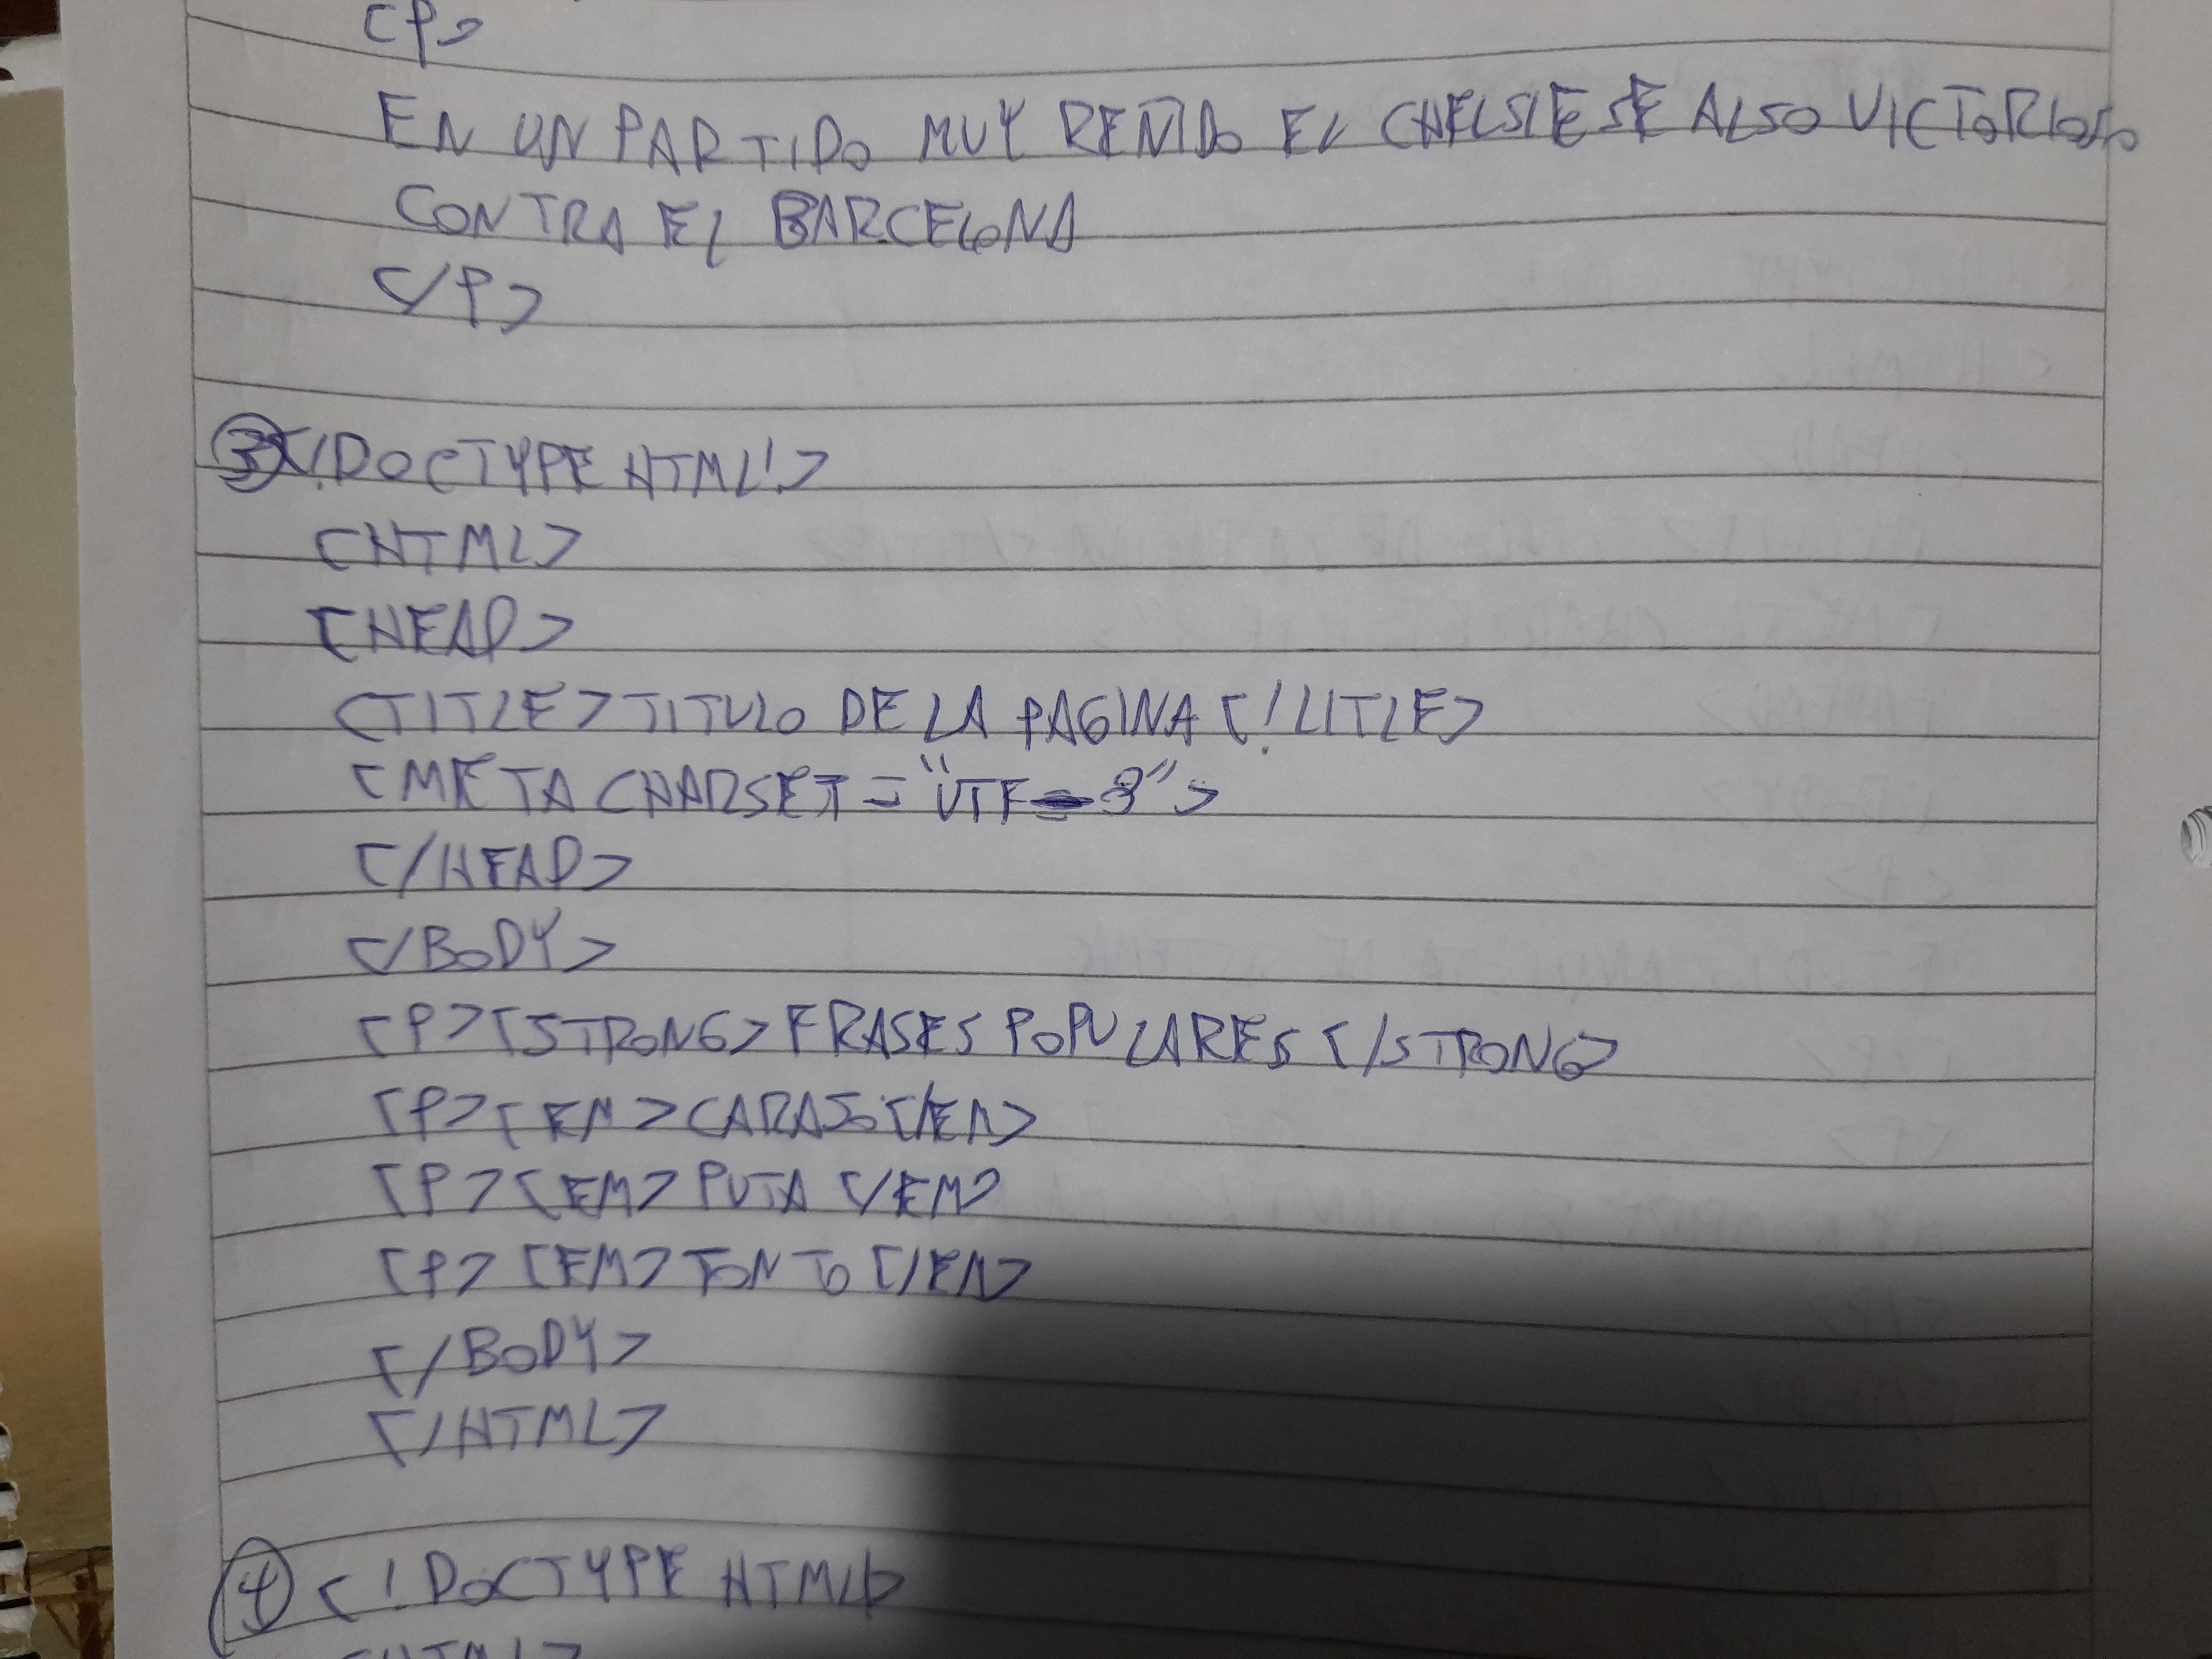 <P>
EN UN PARTIDO MUY REÑIDO EL CHELSIE SE ALSO VICTORIOSO
CONTRA EL BARCELONA
</P>
3 <!DOCTYPE HTML!>
<HTML>
<HEAD>
<TITLE>TITULO DE LA PAGINA <!LITLE>
<META CHARSET="UTF-8">
</HEAD>
</BODY>
<P><STRONG>FRASES POPULARES </STRONG>
<P><EM>CARASO</EM>
<P><EM>PUTA </EM>
<P><EM>TONTO </EM>
</BODY>
</HTML>
4 <!DOCTYPE HTML>